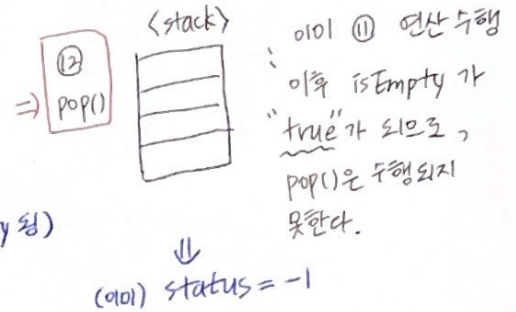 <stack>
⑫
⇒ pop()
∵ 이미 ⑪ 연산 수행
이후 isEmpty 가
"true"가 되므로,
pop()은 수행되지
못한다.
y 됨)
⇓
(이미) status = -1